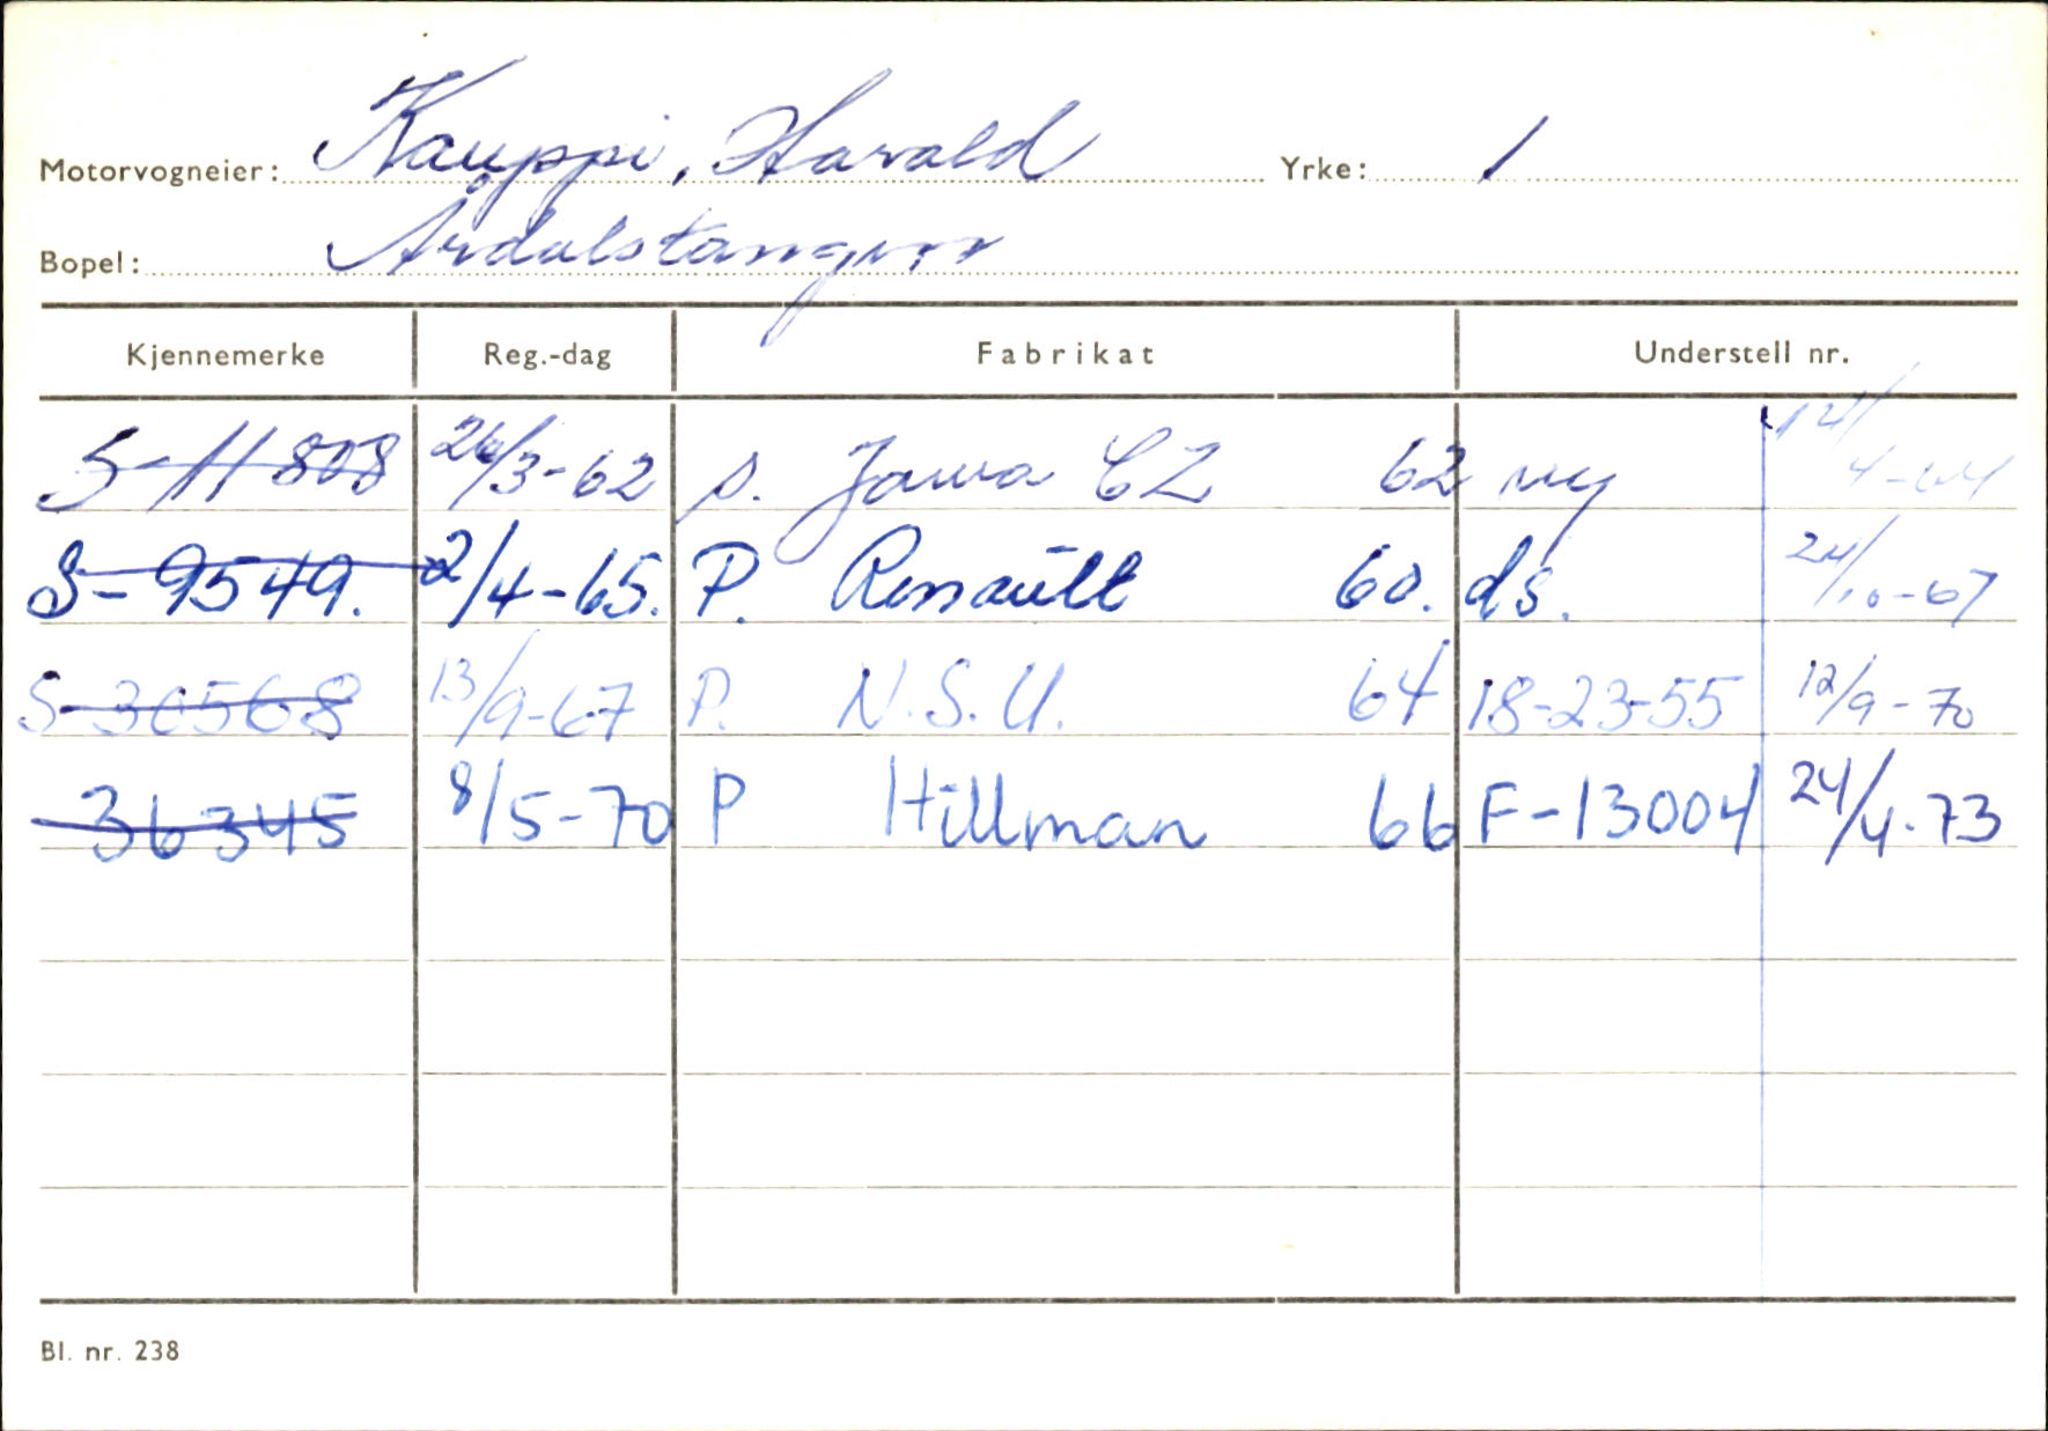 Motorvogneier: Kauppi, Harald Yrke: 1
Bopel: Årdalstangen
Kjennemerke Reg.-dag Fabrikat Understell nr.
S-11808 26/3-62 s. Jawa CZ 62 ny /4-64
S-9549. 2/4-65. P. Renault 60. ds. 24/10-67
S-30568 13/9-67 P. N.S.U. 64 18-23-55 12/9-70
36345 8/5-70 P Hillman 66 F-13004 24/4-73
Bl. nr. 238